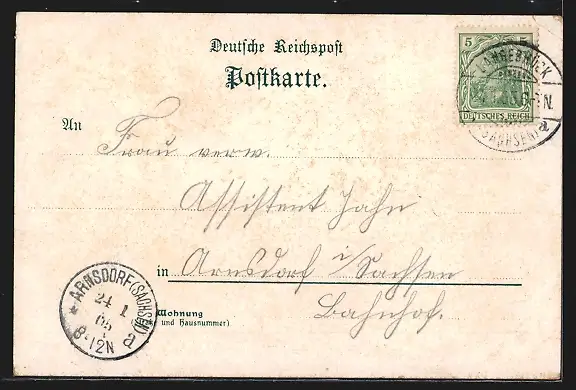 Deutsche Reichspost
Postkarte.
5 5
DEUTSCHES REICH
LANGEBRÜCK
N.
(SACHSEN) a
An
Frau verw.
Assistent Jahn
in Arnsdorf i/Sachsen
Bahnhof.
Wohnung
und Hausnummer)
* ARNSDORF (SACHSEN) a
24 1
05
8-12N